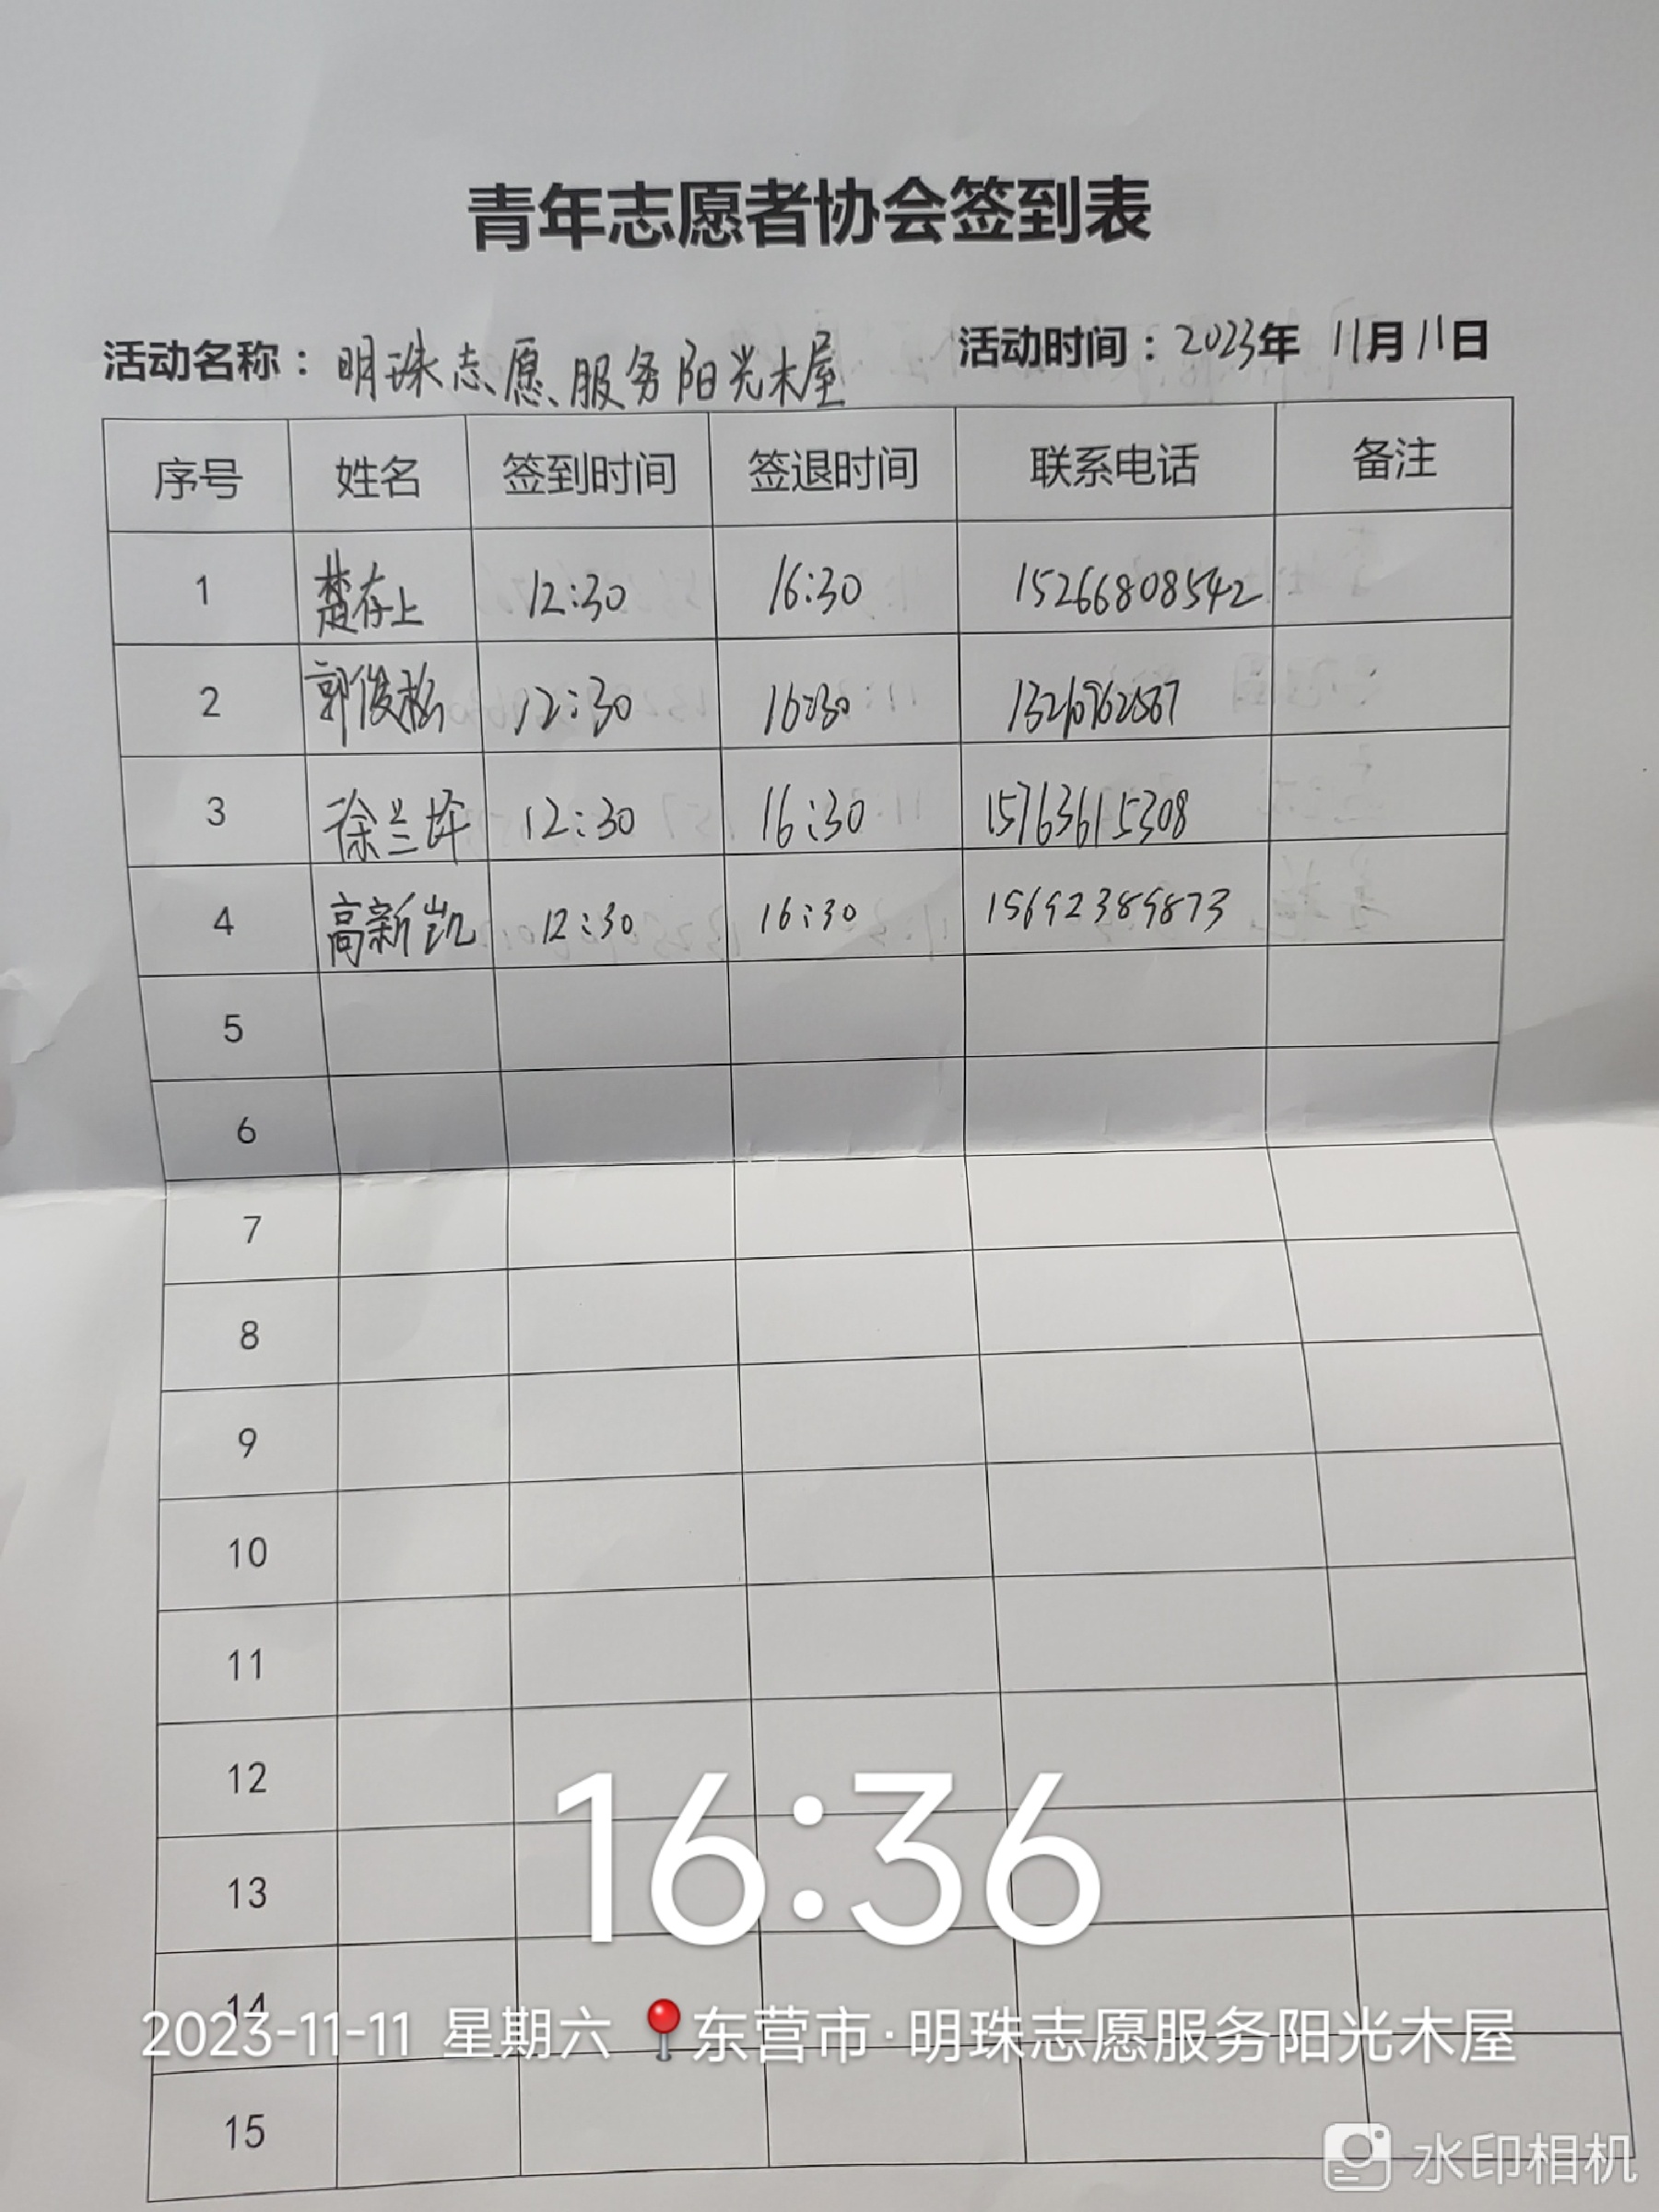 青年志愿者协会签到表
活动名称：明珠志愿服务阳光木屋 活动时间：2023年 11月11日
序号 姓名 签到时间 签退时间 联系电话 备注
1 楚存上 12:30 16:30 15266808542
2 郭俊松 12:30 16:30
3 徐兰 12:30 16:30 15763615308
4 高新凯 12:30 16:30 15692389873
5
6
7
8
9
10
11
12
16:36
13
14
2023-11-11 星期六 东营市·明珠志愿服务阳光木屋
15
水印相机